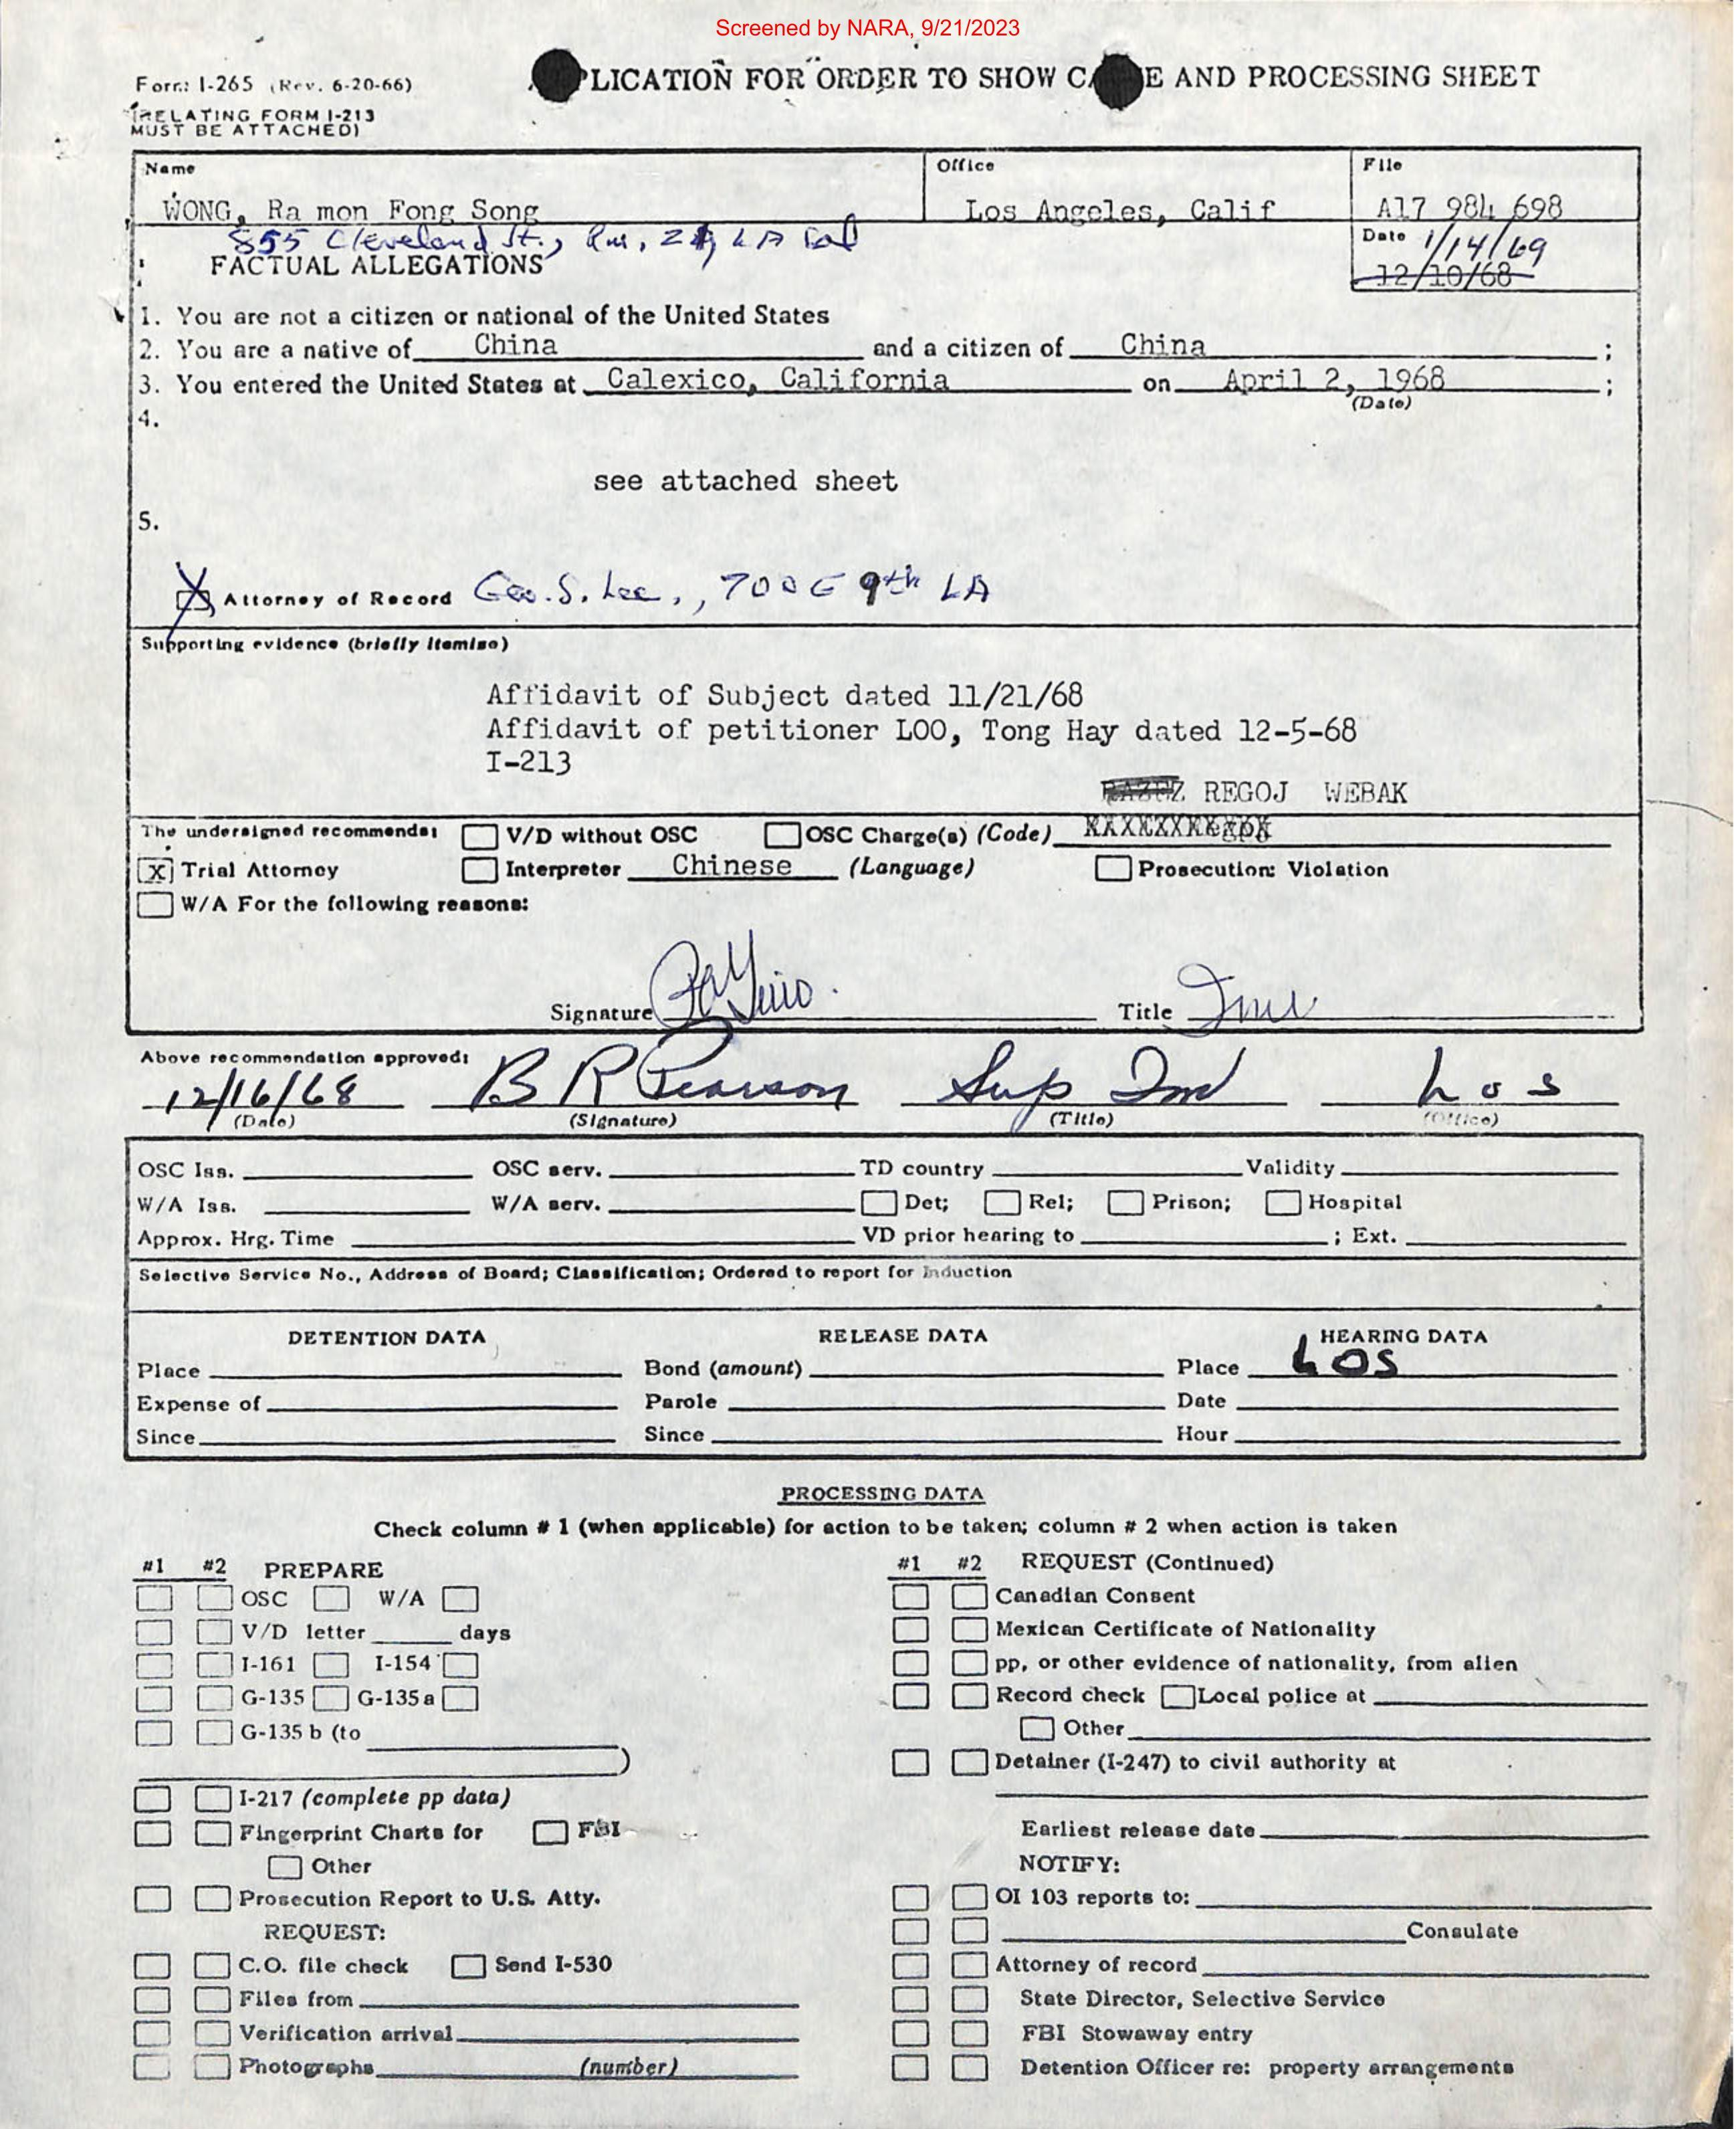 Screened by NARA, 9/21/2023
Form I-265 (Rev. 6-20-66)
(RELATING FORM I-213
MUST BE ATTACHED)
PLICATION FOR ORDER TO SHOW C E AND PROCESSING SHEET
Name Office File
WONG, Ra mon Fong Song Los Angeles, Calif A17 984 698
855 Cleveland St., Rm. LA Cal
Date 1/14/69
12/10/68
FACTUAL ALLEGATIONS
1. You are not a citizen or national of the United States
2. You are a native of China and a citizen of China ;
3. You entered the United States at Calexico, California on April 2, 1968 ;
(Date)
4.
see attached sheet
5.
X Attorney of Record Geo. S. Lee., 700 E 9th LA
Supporting evidence (briefly itemize)
Affidavit of Subject dated 11/21/68
Affidavit of petitioner LOO, Tong Hay dated 12-5-68
I-213
REGOJ WEBAK
The undersigned recommends: V/D without OSC OSC Charge(s) (Code)
X Trial Attorney Interpreter Chinese (Language) Prosecution: Violation
W/A For the following reasons:
Signature Title
Above recommendation approved:
12/16/68 B R Pearson Sup Inv Los
(Date) (Signature) (Title) (Office)
OSC Iss. OSC serv. TD country Validity
W/A Iss. W/A serv. Det; Rel; Prison; Hospital
Approx. Hrg. Time VD prior hearing to ; Ext.
Selective Service No., Address of Board; Classification; Ordered to report for Induction
DETENTION DATA RELEASE DATA HEARING DATA
Place Bond (amount) Place LOS
Expense of Parole Date
Since Since Hour
PROCESSING DATA
Check column # 1 (when applicable) for action to be taken; column # 2 when action is taken
#1 #2 PREPARE
OSC W/A
V/D letter days
I-161 I-154
G-135 G-135a
G-135 b (to
)
I-217 (complete pp data)
Fingerprint Charts for FBI
Other
Prosecution Report to U.S. Atty.
REQUEST:
C.O. file check Send I-530
Files from
Verification arrival
Photographs (number)
#1 #2 REQUEST (Continued)
Canadian Consent
Mexican Certificate of Nationality
pp, or other evidence of nationality, from alien
Record check Local police at
Other
Detainer (I-247) to civil authority at
Earliest release date
NOTIFY:
OI 103 reports to:
Consulate
Attorney of record
State Director, Selective Service
FBI Stowaway entry
Detention Officer re: property arrangements